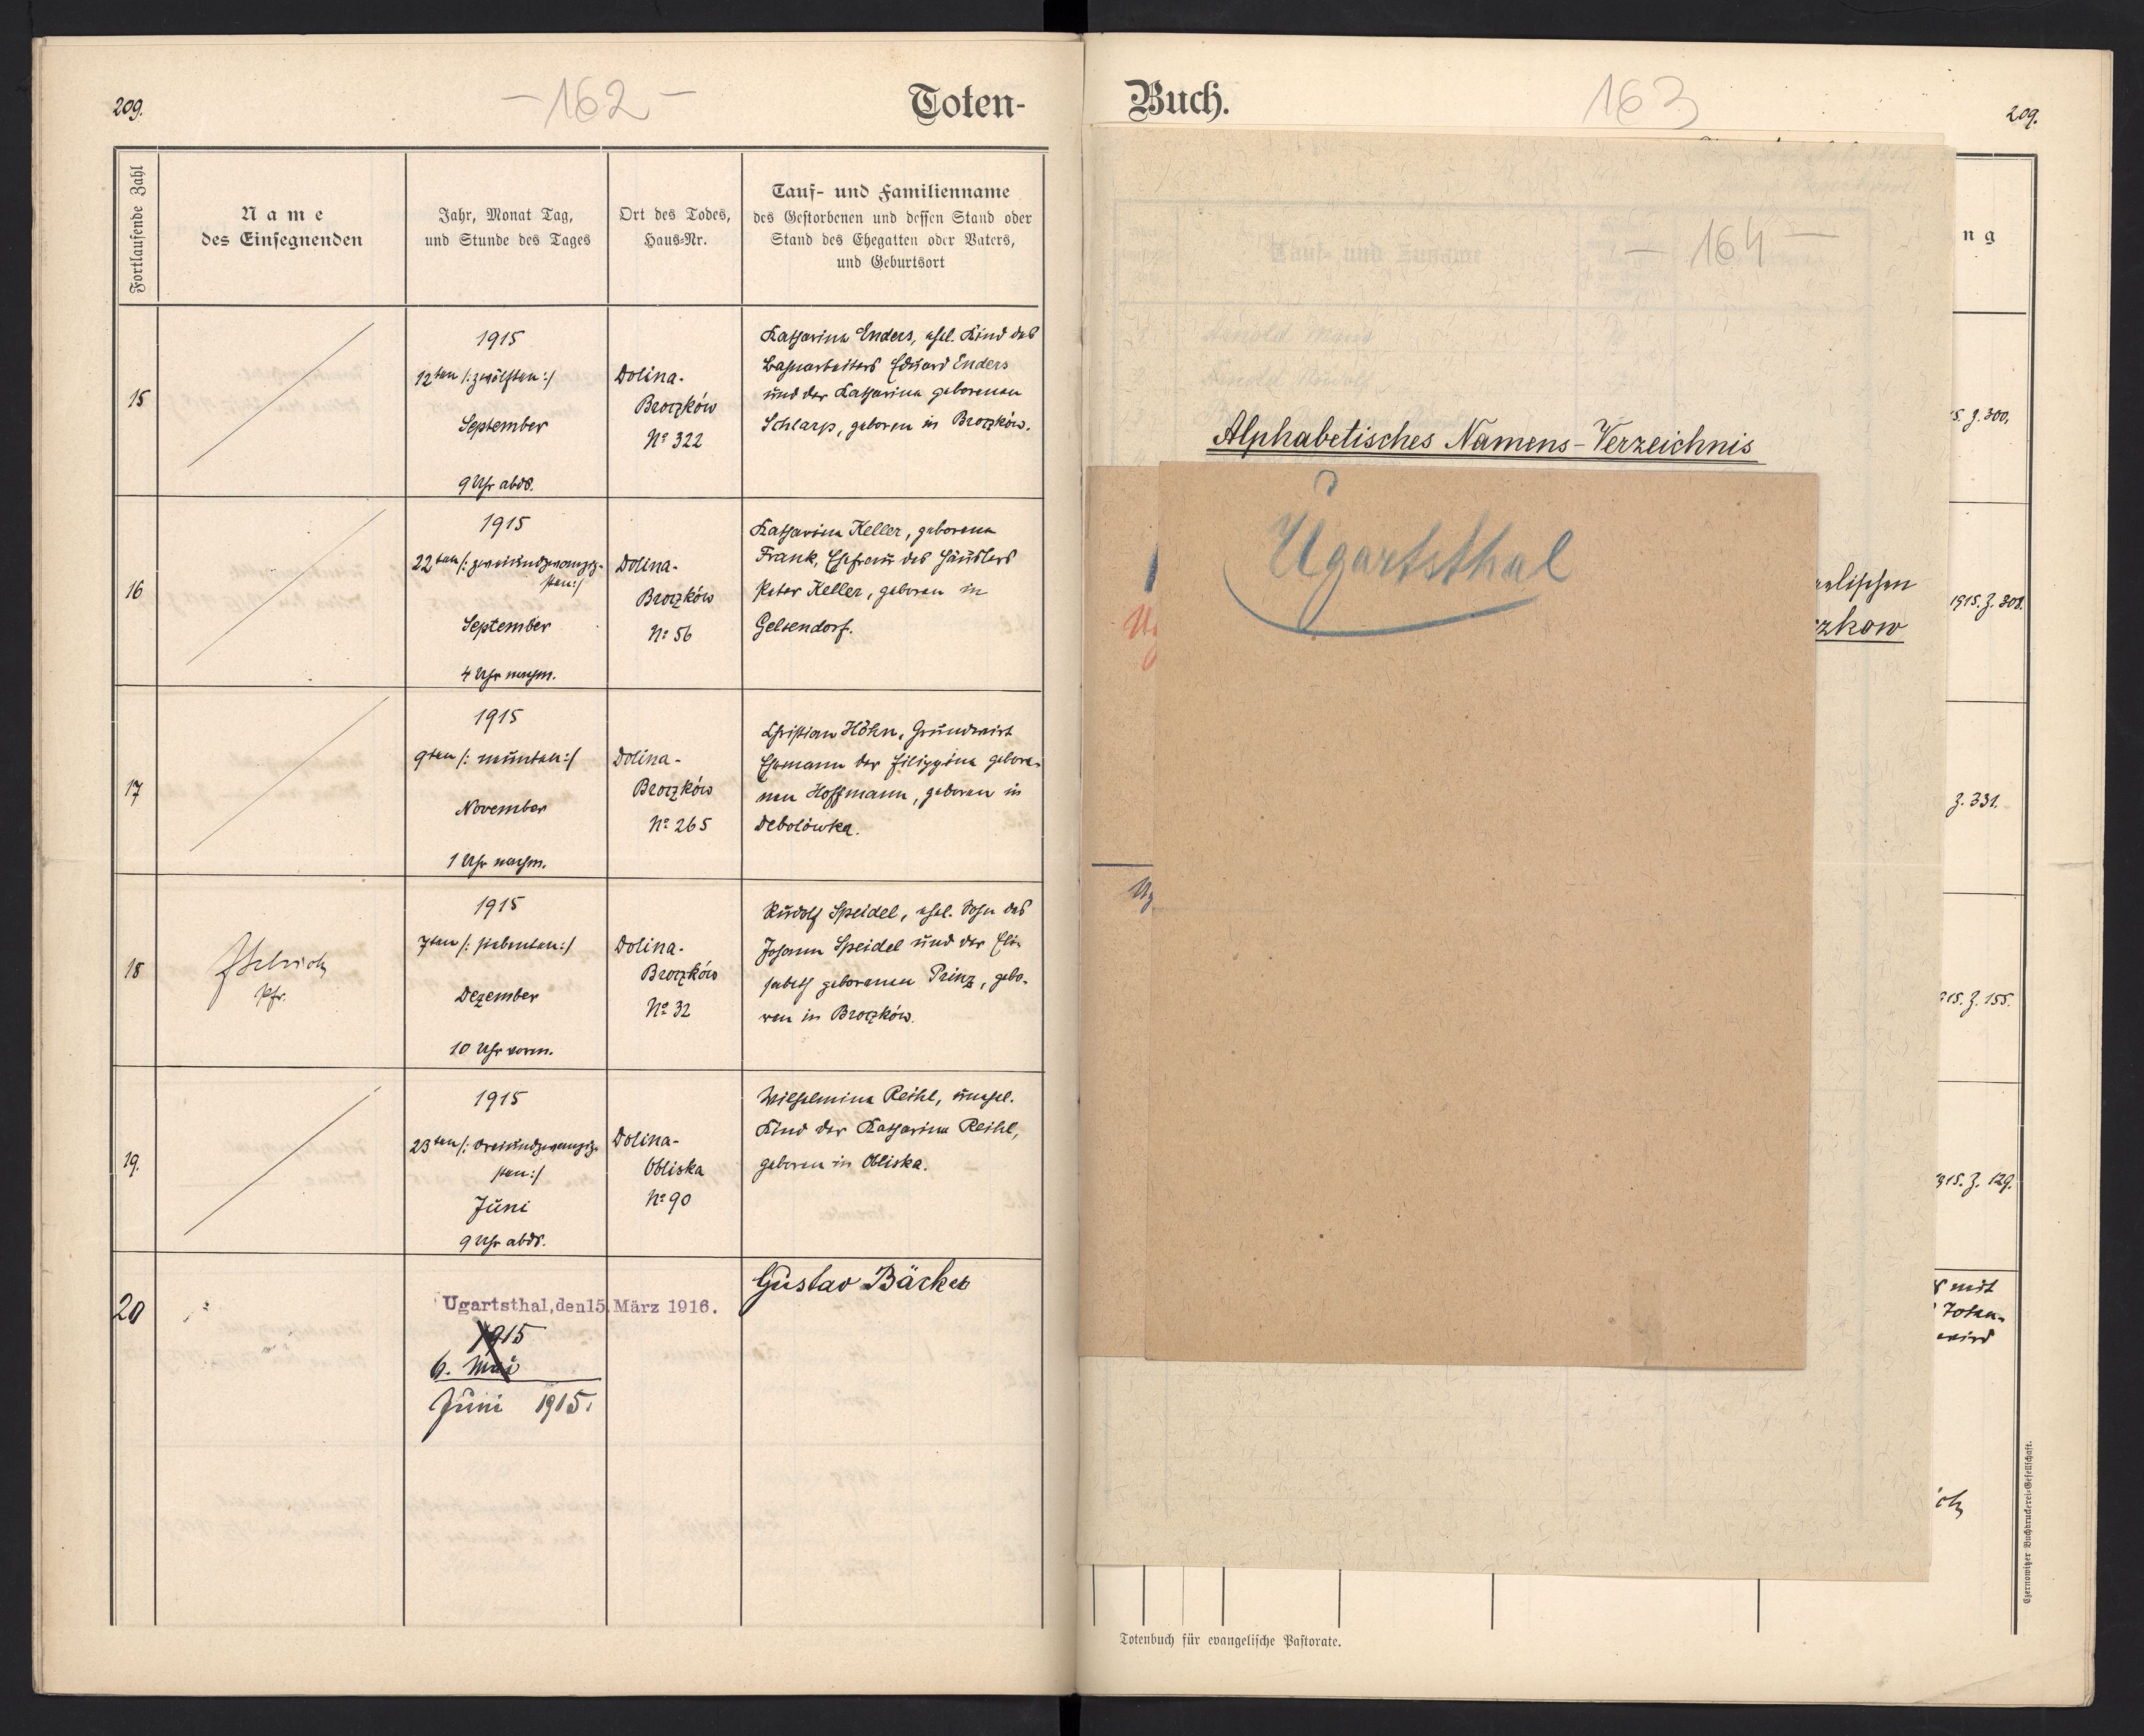 209.
- 162 -
Toten-
Fortlaufende Zahl
Name
des Einsegnenden
Jahr, Monat Tag,
und Stunde des Tages
Ort des Todes,
Haus-Nr.
Tauf- und Familienname
des Gestorbenen und dessen Stand oder
Stand des Ehegatten oder Vaters,
und Geburtsort
15
1915
12ten /: zwölften :/
September
9 Uhr abds.
Dolina-
Broczków
No 322
Katharina Enders, ehel. Kind des
Bahnarbeiters Eduard Enders
und der Katharina geborenen
Schlarp, geboren in Broczków.
16
1915
22ten /: zweiundzwanzig-
sten :/
September
4 Uhr nachm.
Dolina-
Broczków
No 56
Katharina Keller, geborene
Frank, Ehefrau des Häuslers
Peter Keller, geboren in
Gelsendorf.
17
1915
9ten /: neunten :/
November
1 Uhr nachm.
Dolina-
Broczków
No 265
Christian Höhn, Grundwirt
Ehemann der Filippina gebore-
nen Hoffmann, geboren in
Debolówka.
18
Pfr.
1915
7ten /: siebenten :/
Dezember
10 Uhr vorm.
Dolina-
Broczków
No 32
Rudolf Speidel, ehel. Sohn des
Johann Speidel und der Eli-
sabeth geborenen Prinz, gebo-
ren in Broczków.
19.
1915
23ten /: dreiundzwanzig-
sten :/
Juni
9 Uhr abds.
Dolina-
Obliska
No 90
Wilhelmina Reihl, unehel.
Kind der Katharina Reihl,
geboren in Obliska.
20
Ugartsthal, den 15. März 1916.
1915
6. Mai
Juni 1915.
Gustav Bäcker
Buch.
163
209.
ng
- 164 -
Tauf- und Zuname
Arnold
Arnold
Alphabetisches Namens-Verzeichnis
Ugartsthal
elischen
zkow
Ug
Ug
5. Z. 300.
1915. Z. 308.
Z. 331.
915. Z. 155.
915. Z. 129.
mit
Toten-
wird
ich
Totenbuch für evangelische Pastorate.
Czernowitzer Buchdruckerei-Gesellschaft.